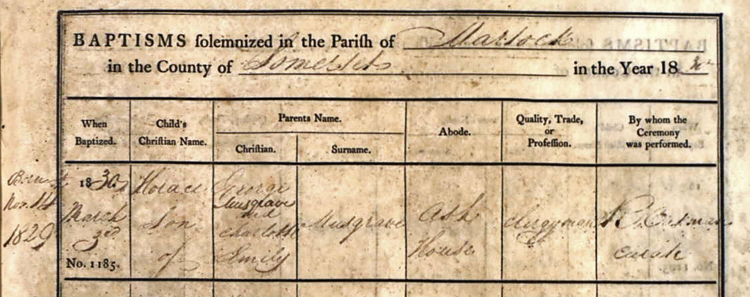 BAPTISMS solemnized in the Parish of Martock
in the County of Somerset in the Year 18 30
When Baptized.
Child's Christian Name.
Parents Name.
Christian.
Surname.
Abode.
Quality, Trade, or Profession.
By whom the Ceremony was performed.
Born
Nov. 14
1829
1830
March
3rd
No. 1185.
Horace
Son
of
George
Musgrave
and
Charlotte
Emily
Musgrave
Ash
House
Clergyman
R.
Curate